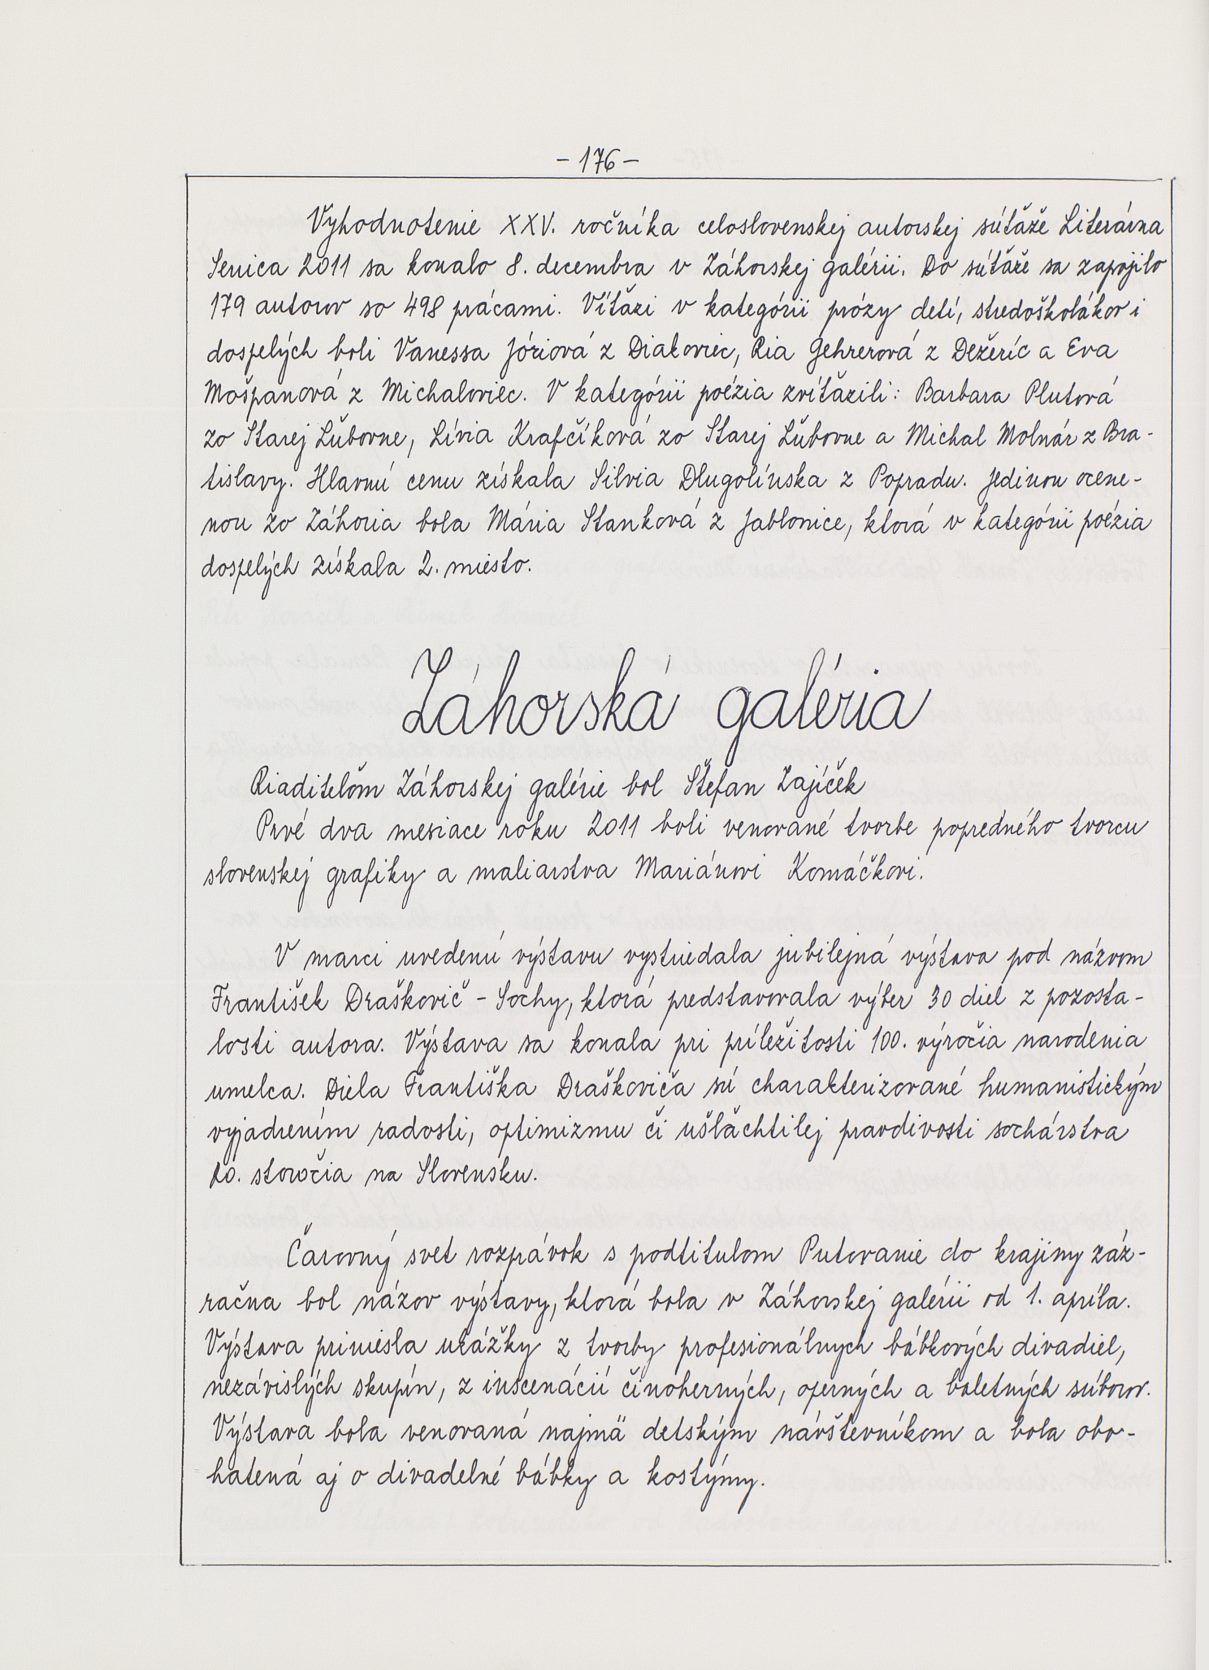 - 176 -
Vyhodnotenie XXV. ročníka celoslovenskej autorskej súťaže Literárna
Senica 2011 sa konalo 8. decembra v Záhorskej galérii. Do súťaže sa zapojilo
179 autorov so 498 prácami. Víťazi v kategórii prózy detí, stredoškolákov i
dospelých boli Vanessa Jóriová z Diakoviec, Ria Gehrerová z Dežeríc a Eva
Mošpanová z Michaloviec. V kategórii poézia zvíťazili: Barbara Plutová
zo Starej Ľubovne, Lívia Krafčíková zo Starej Ľubovne a Michal Molnár z Bra-
tislavy. Hlavnú cenu získala Silvia Dlugolínska z Popradu. Jedinou ocene-
nou zo Záhoria bola Mária Stanková z Jablonice, ktorá v kategórii poézia
dospelých získala 2. miesto.
Záhorská galéria
Riaditeľom Záhorskej galérie bol Štefan Zajíček
Prvé dva mesiace roku 2011 boli venované tvorbe popredného tvorcu
slovenskej grafiky a maliarstva Mariánovi Komáčkovi.
V marci uvedenú výstavu vystriedala jubilejná výstava pod názvom
František Draškovič - Sochy, ktorá predstavovala výber 30 diel z pozosta-
losti autora. Výstava sa konala pri príležitosti 100. výročia narodenia
umelca. Diela Františka Draškoviča sú charakterizované humanistickým
vyjadrením radosti, optimizmu či ušľachtilej pravdivosti sochárstva
20. storočia na Slovensku.
Čarovný svet rozprávok s podtitulom Putovanie do krajiny záz-
račna bol názov výstavy, ktorá bola v Záhorskej galérii od 1. apríla.
Výstava priniesla ukážky z tvorby profesionálnych bábkových divadiel,
nezávislých skupín, z inscenácií činoherných, operných a baletných súborov.
Výstava bola venovaná najmä detským návštevníkom a bola obo-
hatená aj o divadelné bábky a kostýmy.